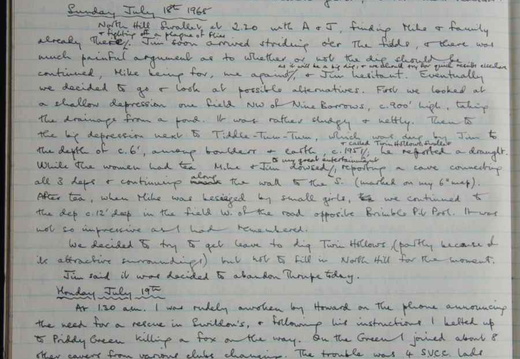 Sunday July 18th 1965
North Hill Swallet at 2.20 with A & J, finding Mike & family
& fighting off a plague of flies
already there. Jim soon arrived striding o'er the fields, & there was
much painful argument as to whether or not the dig should be
as it will be a big dig, & we should say our quick results elsewhere
continued, Mike being for, me against, & Jim hesitant. Eventually
we decided to go & look at possible alternatives. First we looked at
a shallow depression one field NW of Nine Barrows, c.900' high, taking
the drainage from a pond. It was rather sludgy & nettly. Then to
the big depression next to Tiddle-Tum-Tum, which was dug by Jim to
& called Twin Hollows Swallet
the depth of c.6', among boulders & earth, c.1951, he reported a draught.
to my great entertainment
While the women had tea Mike & Jim dowsed, reporting a cave connecting
all 3 deps & continuing along the wall to the S. (marked on my 6" map).
After tea, when Mike was besieged by small girls, we continued to
the dep c.12' deep in the field W. of the road opposite Brimble Pit Pool. It was
not so impressive as I had remembered.
We decided to try to get leave to dig Twin Hollows (partly because of
its attractive surroundings!) but not to fill in North Hill for the moment.
Jim said it was decided to abandon Thrupe today.
Monday July 19th
At 1.20 am. I was rudely awoken by Howard on the phone announcing
the need for a rescue in Swildon's, & following his instructions I belted up
to Priddy Green killing a fox on the way. On the Green I joined about 8
other cavers from various clubs changing. The trouble was 4 SVCC lads